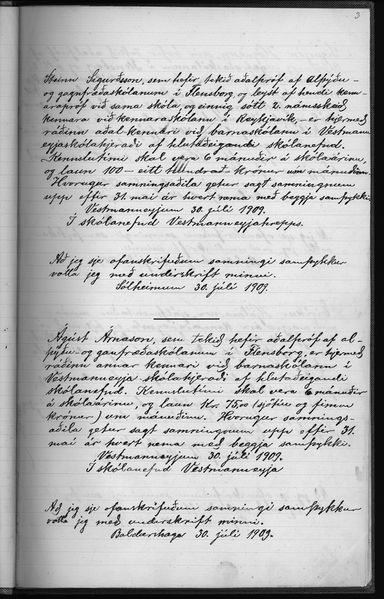 3
Steinn Sigurðsson, sem hefir tekið aðalpróf af alþýðu-
og gagnfræðaskólanum í Flensborg og leyst af hendi kenn-
arapróf við sama skóla, og einnig sótt 2 námsskeið
kennara við kennaraskólann í Reykjavík, er hjermeð
ráðinn aðalkennari við barnaskólann í Vestmann-
eyjaskólahjeraði af hlutaðeigandi skólanefnd.
Kennslutími skal vera 6 mánuðir á skólaárinu,
og laun 100 – eitt hundrað krónur um mánuðinn.
Hvorugur samningsaðila getur sagt samningnum
upp eftir 31. maí ár hvert nema með beggja samþykki.
Vestmannaeyjum 30. júlí 1909.
Í skólanefnd Vestmannaeyjahrepps.
Að jeg sje ofanskrifuðum samningi samþykkur
votta jeg með underskrift minni.
Sólheimum 30. júlí 1909.
Ágúst Árnason, sem tekið hefir aðalpróf af al-
þýðu- og gagnfræðaskólanum í Flensborg, er hjermeð
ráðinn annar kennari við barnaskólann í
Vestmannaeyja skólahjeraði, af hlutaðeigandi
skólanefnd. Kennslutími skal vera 6 mánuðir
á skólaárinu, og laun kr. 75 (sjötíu og fimm
krónur) um mánuðinn. Hvorugur samnings-
aðila getur sagt samningnum upp eftir 31.
maí ár hvert nema með beggja samþykki.
Vestmannaeyjum 30. júlí 1909.
Í skólanefnd Vestmannaeyja
Að jeg sje ofanskrifuðum samningi samþykkur
votta jeg með underskrift minni.
Baldurshaga 30. júlí 1909.